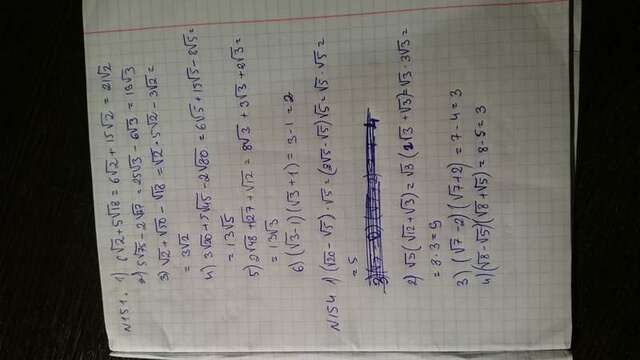 N151. 1) 6√2+5√18 = 6√2+15√2 = 21√2
2) 5√75-2√27 = 25√3-6√3 = 19√3
3) √2+√50-√18 = √2·5√2-3√2 =
= 3√2
4) 3√20+5√45-2√80 = 6√5+15√5-8√5 =
= 13√5
5) 2√48+√27+√12 = 8√3+3√3+2√3 =
= 13√3
6) (√3-1)(√3+1) = 3-1 = 2
N154 1) (√20-√5)·√5 = (2√5-√5)√5 = √5·√5 =
= 5
2) √3(√12+√3) = √3(2√3+√3) = √3·3√3 =
= 3·3 = 9
3) (√7-2)(√7+2) = 7-4 = 3
4) (√8-√5)(√8+√5) = 8-5 = 3